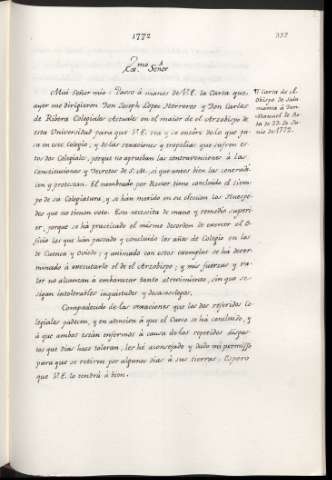 1772
337
Exmo. Señor
Mui Señor mio: Passo à manos de V.E. la Carta que,
ayer me dirigieron Don Joseph Lopez Herreros y Don Carlos
de Ribera Colegiales Actuales en el maior de el Arzobispo de
esta Universidad para que V.E. vea y se entere de lo que pa-
sa en este Colegio, y de las vexaciones y tropelias que sufren es-
tos dos Colegiales, porque no aprueban las contravenciones à las
Constituciones y Decretos de S.M. si que antes bien las
y protestan. El nombrado por Rector tiene concluido el tiem-
po de su Colegiatura, y se han metido en su eleccion los Huespe-
des que no tienen voto. Esto necesita de mano y remedio superi-
or, porque se ha practicado el mismo desorden de exercer el O-
ficio los que han passado y concluido los años de Colegio en los
de Cuenca y Oviedo; y animado con estos exemplos se ha deter-
minado à executarlo el de el Arzobispo; y mis fuerzas y va-
lor no alcanzan à embarazar tanto atrevimiento, sin que se
sigan intolerables inquietudes y desasosiegos.
Compadecido de las vexaciones que los dos referidos Co-
legiales padecen, y en atencion à que el Curso se há concluido, y
à que ambos están enfermos à causa de los repetidos dispa-
tos que dias hace toleran, les hé aconsejado y dado mi permisso
para que se retiren por algunos dias à sus tierras: Espero
que V.E. lo tendrá à bien.
¶ Carta de el
Obispo de Sala
manca à Don
Manuel de Ro-
da de 23 de Ju-
nio de 1772.